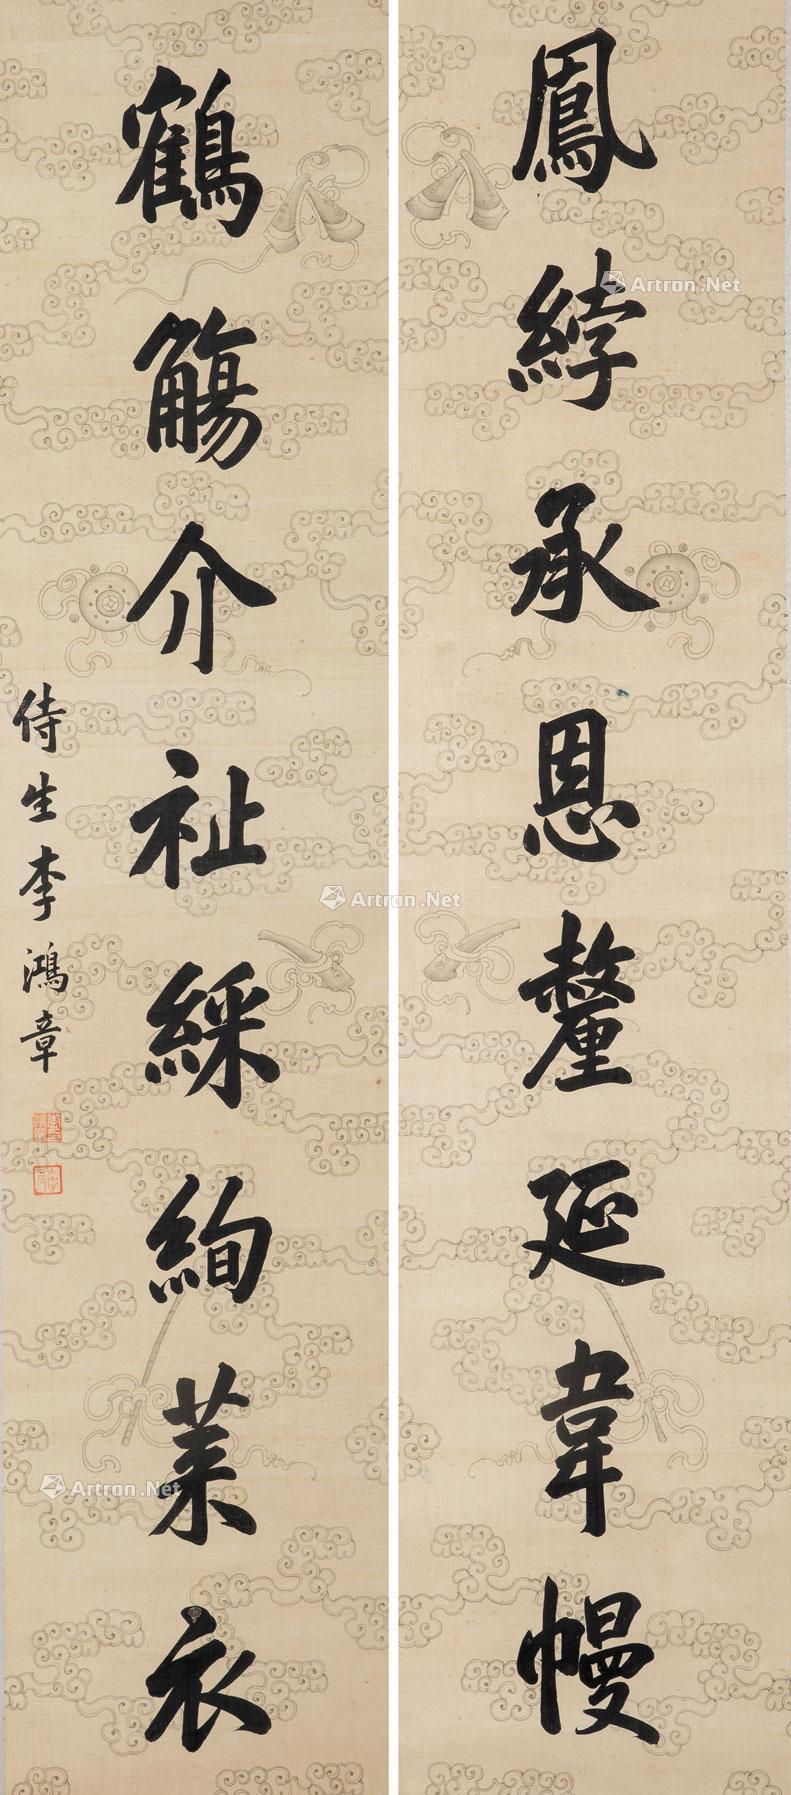 鳳綍承恩釐延韋幔
鶴觴介祉綵絢萊衣
侍生李鴻章
Artron.Net
Artron.Net
Artron.Net